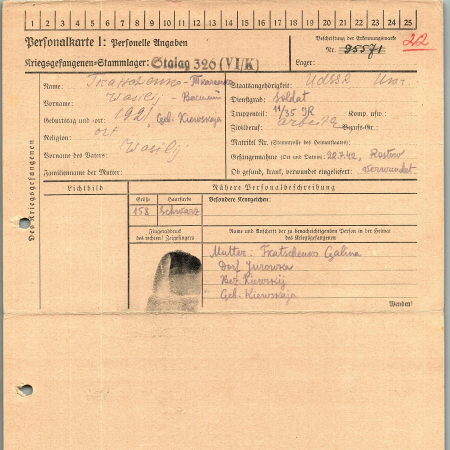 1 2 3 4 5 6 7 8 9 10 11 12 13 14 15 16 17 18 19 20 21 22 23 24 25
Personalkarte I: Personelle Angaben
Kriegsgefangenen-Stammlager: Stalag 326 (VI/K)
Beschriftung der Erkennungsmarke
Nr. 95571
212
Lager:
Des Kriegsgefangenen
Name:
Vorname: Wasilij - Василий
Geburtstag und -ort: 1921 Geb. Kiewskaja
Religion: ort.
Vorname des Vaters: Wasilj
Familienname der Mutter:
Staatsangehörigkeit: UdSSR
Dienstgrad: Soldat
Truppenteil: 11/35 IR Komp. usw.:
Zivilberuf: Berufs-Gr.:
Matrikel Nr. (Stammrolle des Heimatstaates):
Gefangennahme (Ort und Datum): 22.7.42, Rostow
Ob gesund, krank, verwundet eingeliefert: verwundet.
Lichtbild
Nähere Personalbeschreibung
Größe
Haarfarbe
Besondere Kennzeichen:
158
Schwarz
Fingerabdruck
des rechten! Zeigefingers
Name und Anschrift der zu benachrichtigenden Person in der Heimat
des Kriegsgefangenen
Mutter: Tkatschenko Galina
Dorf Jurowka
Bez. Kiewskij
Geb. Kiewskaja
Wenden!